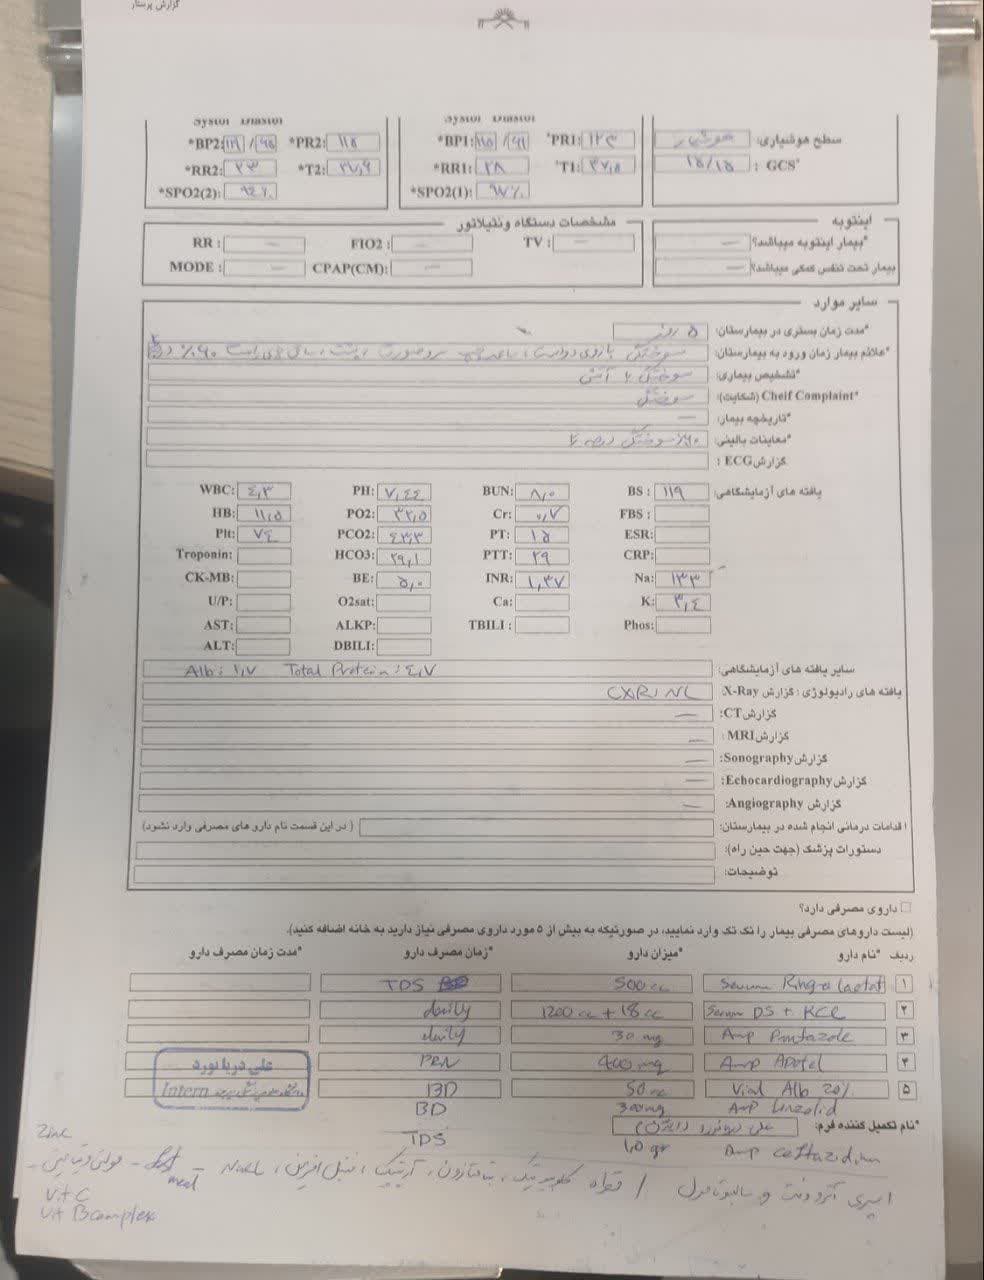 گزارش پرستار
Systol Diastol
Systol Diastol
سطح هوشیاری: هوشیار
*PR1: ۱۲۳
*BP1: ۱۱۵ /۶۱
*PR2: ۱۱۵
*BP2:
GCS* : ۱۵/۱۵
T1: ۳۷,۵
*RR1: ۲۸
*T2: ۳۷,۶
*RR2: ۲۳
*SPO2(1): ۹۷٪
*SPO2(2): ۹۴٪
اینتوبه
مشخصات دستگاه ونتیلاتور
*بیمار اینتوبه میباشد؟ —
TV : —
FIO2 : —
RR : —
بیمار تحت تنفس کمکی میباشد؟ —
CPAP(CM): —
MODE : —
سایر موارد
*مدت زمان بستری در بیمارستان: ۵ روز
*علائم بیمار زمان ورود به بیمارستان: سوختگی
*تشخیص بیماری: سوختگی با آتش
*Cheif Complaint (شکایت): سوختگی
*تاریخچه بیمار: —
*معاینات بالینی: ۶۰٪ سوختگی درجه ۲
گزارش ECG :
یافته های آزمایشگاهی:
WBC: ۴,۳ PH: ۷,۴۴ BUN: ۸,۰ BS : ۱۱۹
HB: ۱۱,۵ PO2: ۳۲,۵ Cr: ۰,۷ FBS :
Plt: ۷۴ PCO2: ۴۳,۳ PT: ۱۵ ESR:
Troponin: HCO3: ۲۹,۱ PTT: ۲۹ CRP:
CK-MB: BE: ۵,۰ INR: ۱,۳۷ Na: ۱۳۳
U/P: O2sat: Ca: K: ۳,۴
AST: ALKP: TBILI : Phos:
ALT: DBILI:
سایر یافته های آزمایشگاهی: Alb: ۱,۷ Total Protein: ۴,۷
یافته های رادیولوژی : گزارش X-Ray: CXR: NL
گزارش CT: —
گزارش MRI: —
گزارش Sonography: —
گزارش Echocardiography: —
گزارش Angiography: —
اقدامات درمانی انجام شده در بیمارستان: ( در این قسمت نام دارو های مصرفی وارد نشود)
دستورات پزشک (جهت حین راه):
توضیحات:
داروی مصرفی دارد؟
(لیست داروهای مصرفی بیمار را تک تک وارد نمایید، در صورتیکه به بیش از ۵ مورد داروی مصرفی نیاز دارید به خانه اضافه کنید).
ردیف *نام دارو *میزان دارو *زمان مصرف دارو *مدت زمان مصرف دارو
۱ Serum Ringer lactat 500 cc TDS
۲ Serum DS + KCl 1200 cc + 18 cc daily
۳ Amp Pantazole 30 mg daily
۴ Amp Apotel 400 mg PRN
۵ Vial Alb 20% 50 cc BD
Amp Linezolid 300mg BD
Amp Ceftazidim 1,0 gr TDS
علی دریانورد
Intern
*نام تکمیل کننده فرم:
اسپری آتروونت و سالبوتامول / قطره
مولتی ویتامین
Zinc
Vit C
Vit B complex